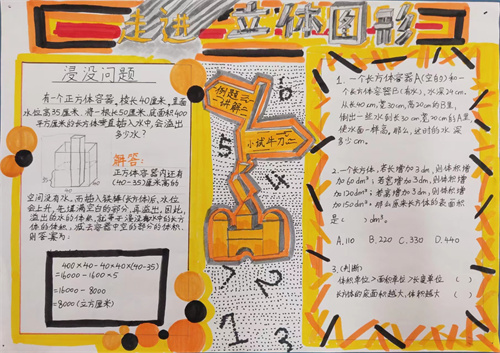 走进 立体图形
浸没问题
有一个正方体容器,棱长40厘米,里面
水位高35厘米,将一根长50厘米,底面积400
平方厘米的长方体垂直插入水中,会溢出
多少水?
40
40
35
解答:
正方体容器内还有
(40-35)厘米高的
空间没有水,而插入铁棒(长方体)后,水位
会上升,先填满空白的部分,再溢出,因此,
溢出的水的体积,就等于浸没在水中的长方
体的体积,减去容器中空的部分的体积,
则答案为:
400×40-40×40×(40-35)
=16000-1600×5
=16000-8000
=8000(立方厘米)
例题
讲解
小试牛刀
6
5
4
7
2
1
3
1. 一个长方体容器A(空的)和一
个长方体容器B(有水),水深24cm,
从长40cm,宽30cm,高20cm的B里,
倒出一些水到长30cm宽20cm的A里,
使水面一样高,那么,这时的水深
多少cm.
2.一个长方体,若长增加2dm,则体积增
加60dm³;若宽增加3dm,则体积增
加120dm³;若高增加3dm,则体积增
加150dm³。那么原来长方体的表面积
是( )dm².
A.110 B.220 C.330 D.440
3.(判断)
体积单位>面积单位>长度单位 ( )
长方体的底面积越大,体积越大 ( )